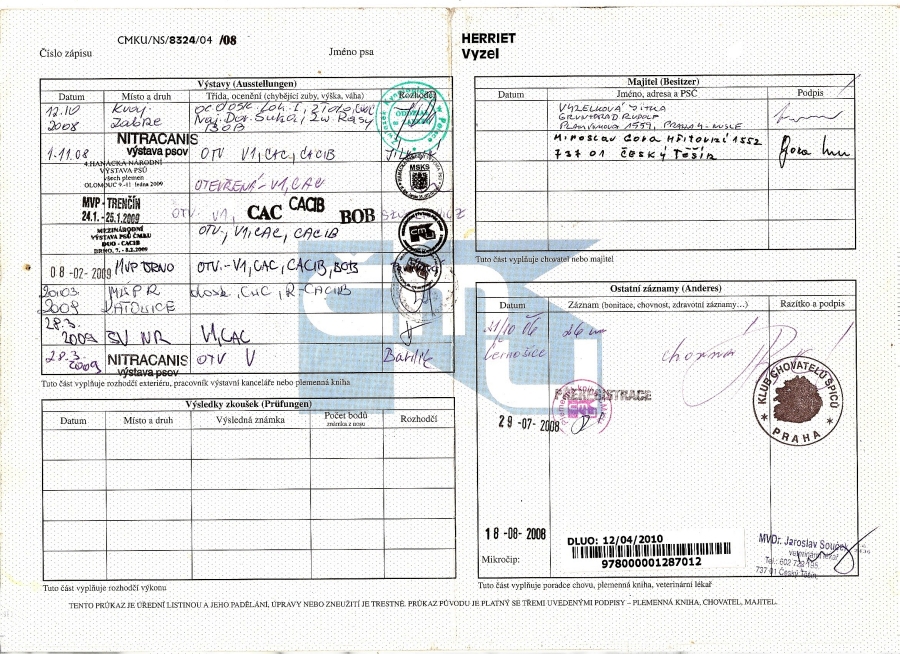 CMKU/NS/8324/04 /08
Číslo zápisu
Jméno psa
HERRIET
Vyzel
Výstavy (Ausstellungen)
Datum Místo a druh Třída, ocenění (chybějící zuby, výška, váha) Rozhodčí
12.10 2008 Zabrze BOB
NITRACANIS
výstava psov
1-11.08 OTV V1, CAC, CACIB
4.HANÁCKÁ NÁRODNÍ
VÝSTAVA PSŮ
všech plemen
OLOMOUC 9 -11 ledna 2009
OTEVŘENÁ - V1, CAC
MSKS
MVP - TRENČÍN
24.1. - 25.1.2009
OTV. V1, CAC CACIB BOB
MEZINÁRODNÍ
VÝSTAVA PSŮ ČMKU
DUO - CACIB
BRNO, 7. - 8.2.2009
OTV., V1, CAC, CACIB
08 -02- 2009 MVP BRNO OTV. - V1, CAC, CACIB, BOB
20.03. 2009 MWPR KATOWICE dosk., CWC, R-CACIB
28.3. 2009 SV NR V1, CAC
28.3. 2009 NITRACANIS
výstava psov
OTV V
Tuto část vyplňuje rozhodčí exteriéru, pracovník výstavní kanceláře nebo plemenná kniha
Výsledky zkoušek (Prüfungen)
Datum Místo a druh Výsledná známka Počet bodů
známka z nosu
Rozhodčí
Tuto část vyplňuje rozhodčí výkonu
Majitel (Besitzer)
Datum Jméno, adresa a PSČ Podpis
VYZELKOVÁ JITKA
GRUNTORAD RUDOLF
PLAMÍNKOVÉ 1559, PRAHA 4-NUSLE
MIROSLAV GORA HŘITOVNÍ 1552
737 01 ČESKÝ TĚŠÍN
Tuto část vyplňuje chovatel nebo majitel
Ostatní záznamy (Anderes)
Datum Záznam (bonitace, chovnost, zdravotní záznamy…) Razítko a podpis
21/10 06 26 cm
Černošice chovná
KLUB CHOVATELŮ ŠPICŮ
PRAHA
PŘEREGISTRACE
29 -07- 2008
18 -08- 2008
DLUO: 12/04/2010
978000001287012
Mikročip:
MVDr. Jaroslav Souček
veterinární lékař
737 01 Český Těšín
Tuto část vyplňuje poradce chovu, plemenná kniha, veterinární lékař
TENTO PRŮKAZ JE ÚŘEDNÍ LISTINOU A JEHO PADĚLÁNÍ, ÚPRAVY NEBO ZNEUŽITÍ JE TRESTNÉ. PRŮKAZ PŮVODU JE PLATNÝ SE TŘEMI UVEDENÝMI PODPISY – PLEMENNÁ KNIHA, CHOVATEL, MAJITEL.